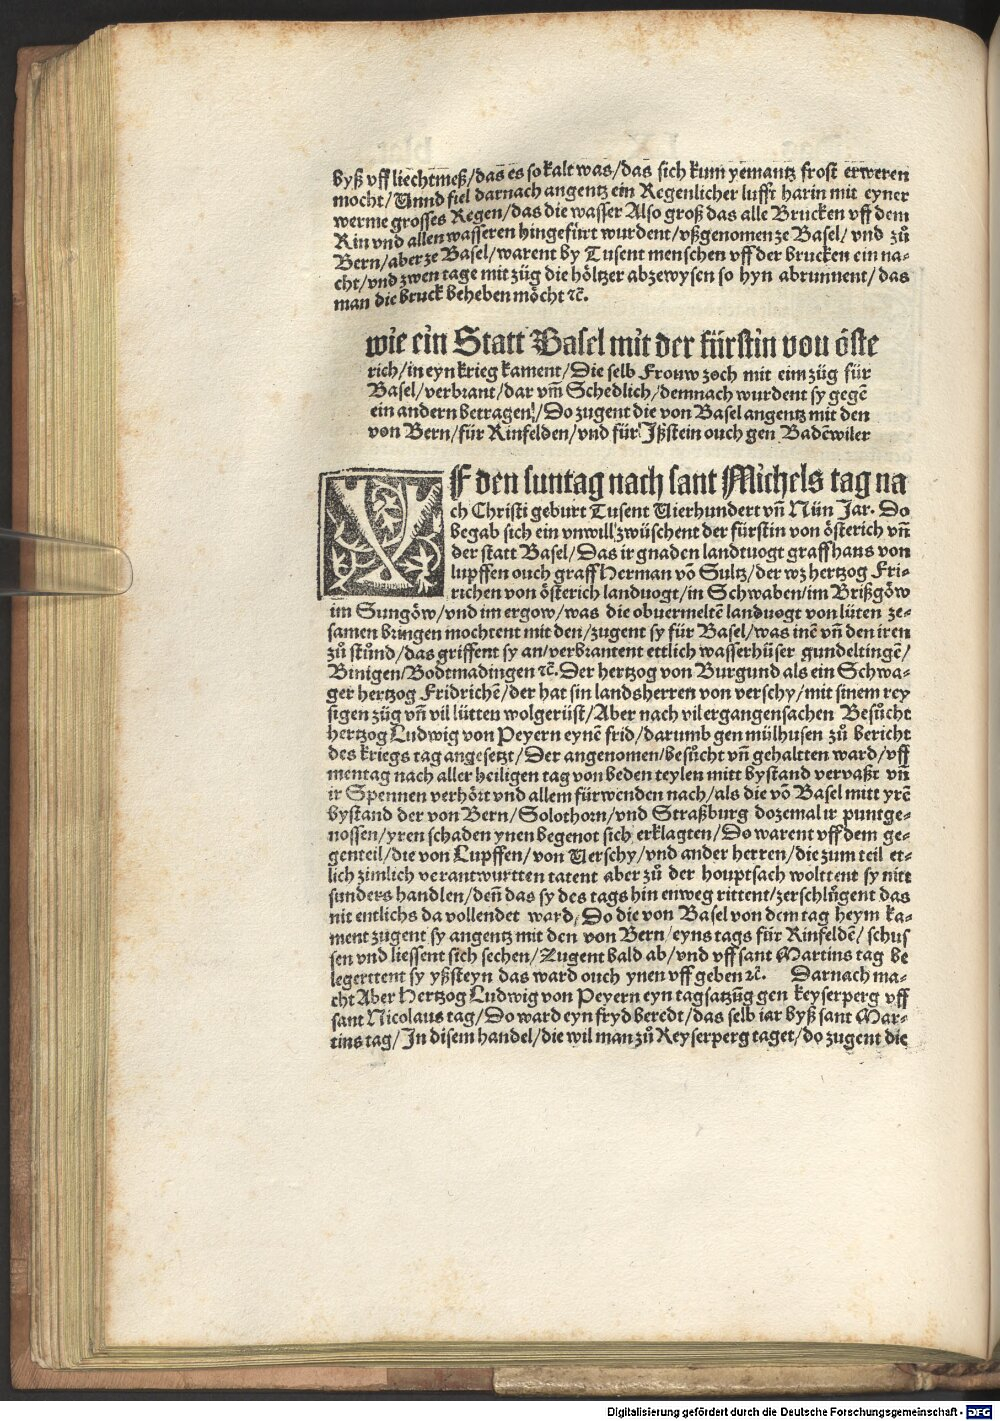 byß vff liechtmeß/das es so kalt was/das sich kum yemantz frost erweren
mocht/Unnd fiel darnach angentz ein Regenlicher lufft harin mit eyner
werme grosses Regen/das die wasser Also groß das alle Brucken vff dem
Rin vnd allen wasseren hingefürt wurdent/vßgenomen ze Basel/ vnd zů
Bern/aber ze Basel/warent by Tusent menschen vff der brucken ein na-
cht/vnd zwen tage mit züg die höltzer abzewysen so hyn abrunnent/das
man die bruck beheben möcht ꝛc̄.
wie ein Statt Basel mit der fürstin von öste
rich/in eyn krieg kament/Die selb Frouw zoch mit eim züg für
Basel/verbrant/dar vm̄ Schedlich/demnach wurdent sy gegē
ein andern betragen/Do zugent die von Basel angentz mit den
von Bern/für Rinfelden/vnd für Jßstein ouch gen Badēwiler
VF den suntag nach sant Michels tag na
ch Christi geburt Tusent Vierhundert vn̄ Nün Jar. Do
begab sich ein vnwill zwüschent der fürstin von österich vn̄
der statt Basel/Das ir gnaden landtuogt graff hans von
lupffen ouch graff Herman vō Sultz/der wz hertzog Fri-
richen von österich landuogt/in Schwaben/im Brißgöw
im Sungöw/vnd im ergow/was die obuermeltē landuogt von lüten ze-
samen bringen mochtent mit den/zugent sy für Basel/was inē vn̄ den iren
zů stůnd/das griffent sy an/verbrantent ettlich wasserhüser gundeltingē/
Binigen/Bodtmadingen ꝛc̄. Der hertzog von Burgund als ein Schwa-
ger hertzog Fridrichē/der hat sin landsherren von verschy/mit sinem rey
sigen züg vn̄ vil lütten wolgerüst/Aber nach vil ergangen sachen Besůcht
hertzog Ludwig von Peyern eynē frid/darumb gen mülhusen zů bericht
des kriegs tag angesetzt/Der angenomen/besůcht vn̄ gehaltten ward/vff
mentag nach aller heiligen tag von beden teylen mitt bystand verfaßt vn̄
ir Spennen verhört vnd allem fürwenden nach/als die vō Basel mitt yrē
bystand der von Bern/Solothorn/vnd Straßburg dozemal ir puntge-
nossen/yren schaden ynen begenot sich erklagten/Do warent vff dem ge-
genteil/die von Lupffen/von Verschy/vnd ander herren/die zum teil et-
lich zimlich verantwurtten tatent aber zů der houptsach wolttent sy nitt
sunders handlen/den̄ das sy des tags hin enweg rittent/zerschlůgent das
nit entlichs da vollendet ward/Do die von Basel von dem tag heym ka-
ment zugent sy angentz mit den von Bern/eyns tags für Rinfeldē/schus
sen vnd liessent sich sechen/Zugent bald ab/vnd vff sant Martins tag be
legerttent sy yßsteyn das ward ouch ynen vff geben ꝛc̄. Darnach ma-
cht Aber Hertzog Ludwig von Peyern eyn tagsatzūg gen keyserperg vff
sant Nicolaus tag/Do ward eyn fryd beredt/das selb iar byß sant Mar-
tins tag/Jn disem handel/die wil man zů Keyserperg taget/do zugent die
Digitalisierung gefördert durch die Deutsche Forschungsgemeinschaft - DFG